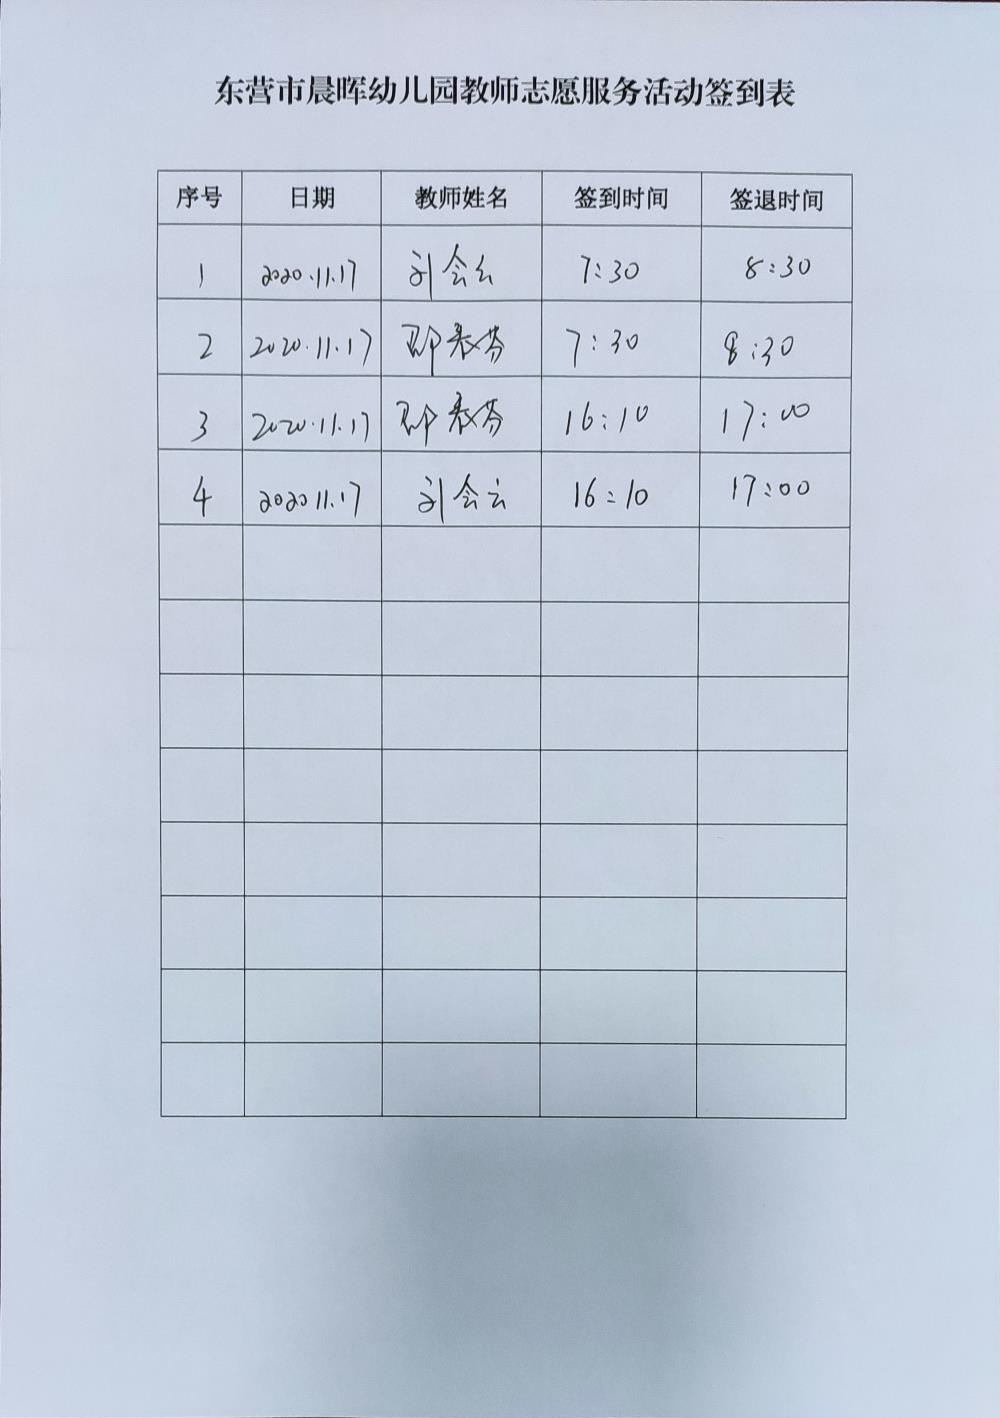 东营市晨晖幼儿园教师志愿服务活动签到表
序号 日期 教师姓名 签到时间 签退时间
1 2020.11.17 刘会云 7:30 8:30
2 2020.11.17 7:30 8:30
3 2020.11.17 16:10 17:00
4 2020 11.17 刘会云 16:10 17:00